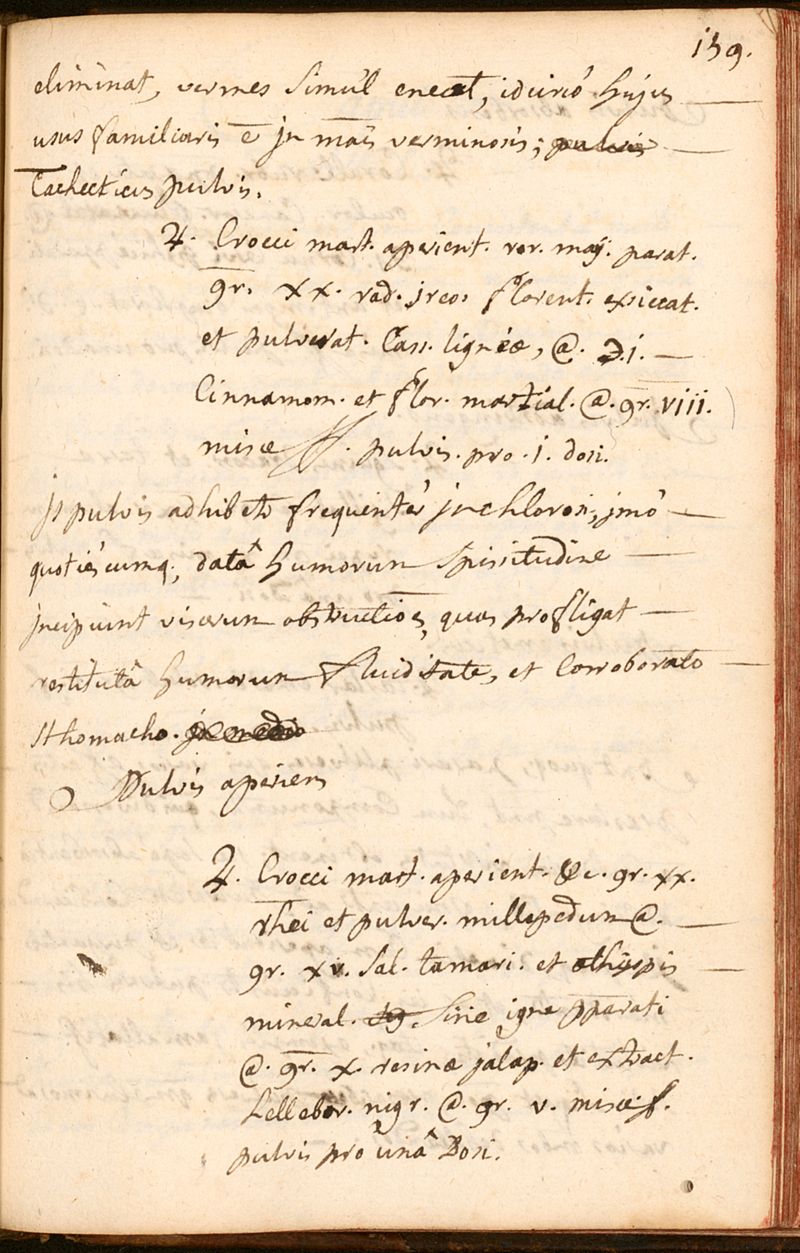 159.
eliminat, vermes simúl enecat, idcircó hújus
usus familiaris ē jn māis verminosis; pulvis
Cachecticus pulvis.
♃. Crocci mart. aperient. ror. maij. parat.
gr. xx. rad. jreos florent. exsiccat.
et pulverat. Cass. ligneæ, @. ℈.i.
Cinnamom. et flor. martial. @. gr. viii.
misce ff. pulvis. pro. i. dosi.
js pulvis adhibetr frequentér jn chlorosi, jmó
quotiéscumq; datâ humorum spissitudine
jncipiunt viscerum obstructioēs, quas profligat
restitutâ humorum fluiditate, et Corroborato
sthomacho. jn medio
Pulvis aperiens
♃. Crocci mart. aperient. &c. gr. xx.
rhei et pulver. millepedum @.
gr. xv. sal. tamari. et æthiopis
mineral. sine igne pparati
@. gr. x. resinæ jalap. et extract.
hellebor. nigr. @. gr. v. misce f.
pulvis pro unâ Dosi.